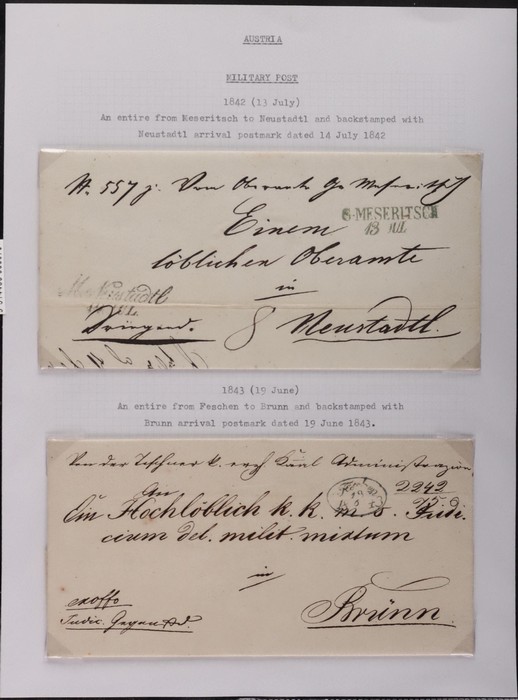 AUSTRIA
MILITARY POST
1842 (13 July)
An entire from Meseritsch to Neustadtl and backstamped with
Neustadtl arrival postmark dated 14 July 1842
N. 557 j. Vom Oberamte Gr Meseritsch
Einem
G-MESERITSCH
13 JUL
löblichen Oberamte
in
Neustadtl
Dringend. 8 Neustadtl.
1843 (19 June)
An entire from Feschen to Brunn and backstamped with
Brunn arrival postmark dated 19 June 1843.
Von der Teschner k. erzh Kaal Administrazion
An 2242
Ein Hochlöblich k. k. m. s. Judi
cium del. milit. mixtum
in
exoffo
Judic. Brünn.